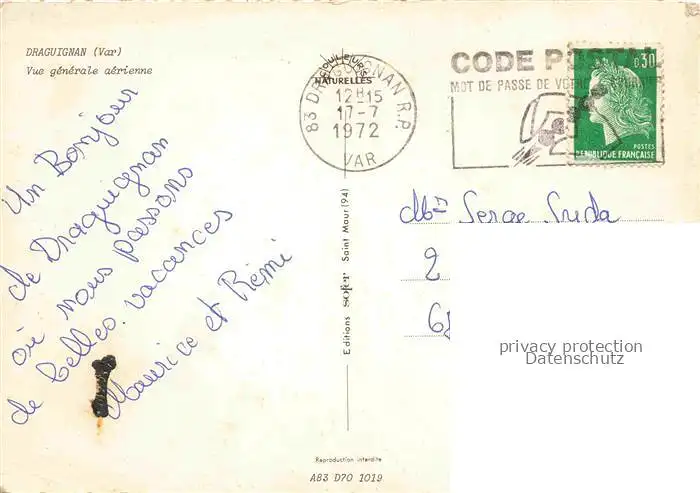 DRAGUIGNAN (Var)
Vue générale aérienne
COULEURS
NATURELLES
83 DRAGUIGNAN R.P.
12H15
17-7
1972
VAR
CODE POSTAL
MOT DE PASSE DE VOTRE COURRIER
0,30
POSTES
REPUBLIQUE FRANÇAISE
Un Bonjour
de Draguignan
où nous passons
de belles vacances
Maurice et Rémi
Editions sofer Saint Maur (94)
Mr Serge Suda
2
6
privacy protection
Datenschutz
Reproduction interdite
A83 D70 1019